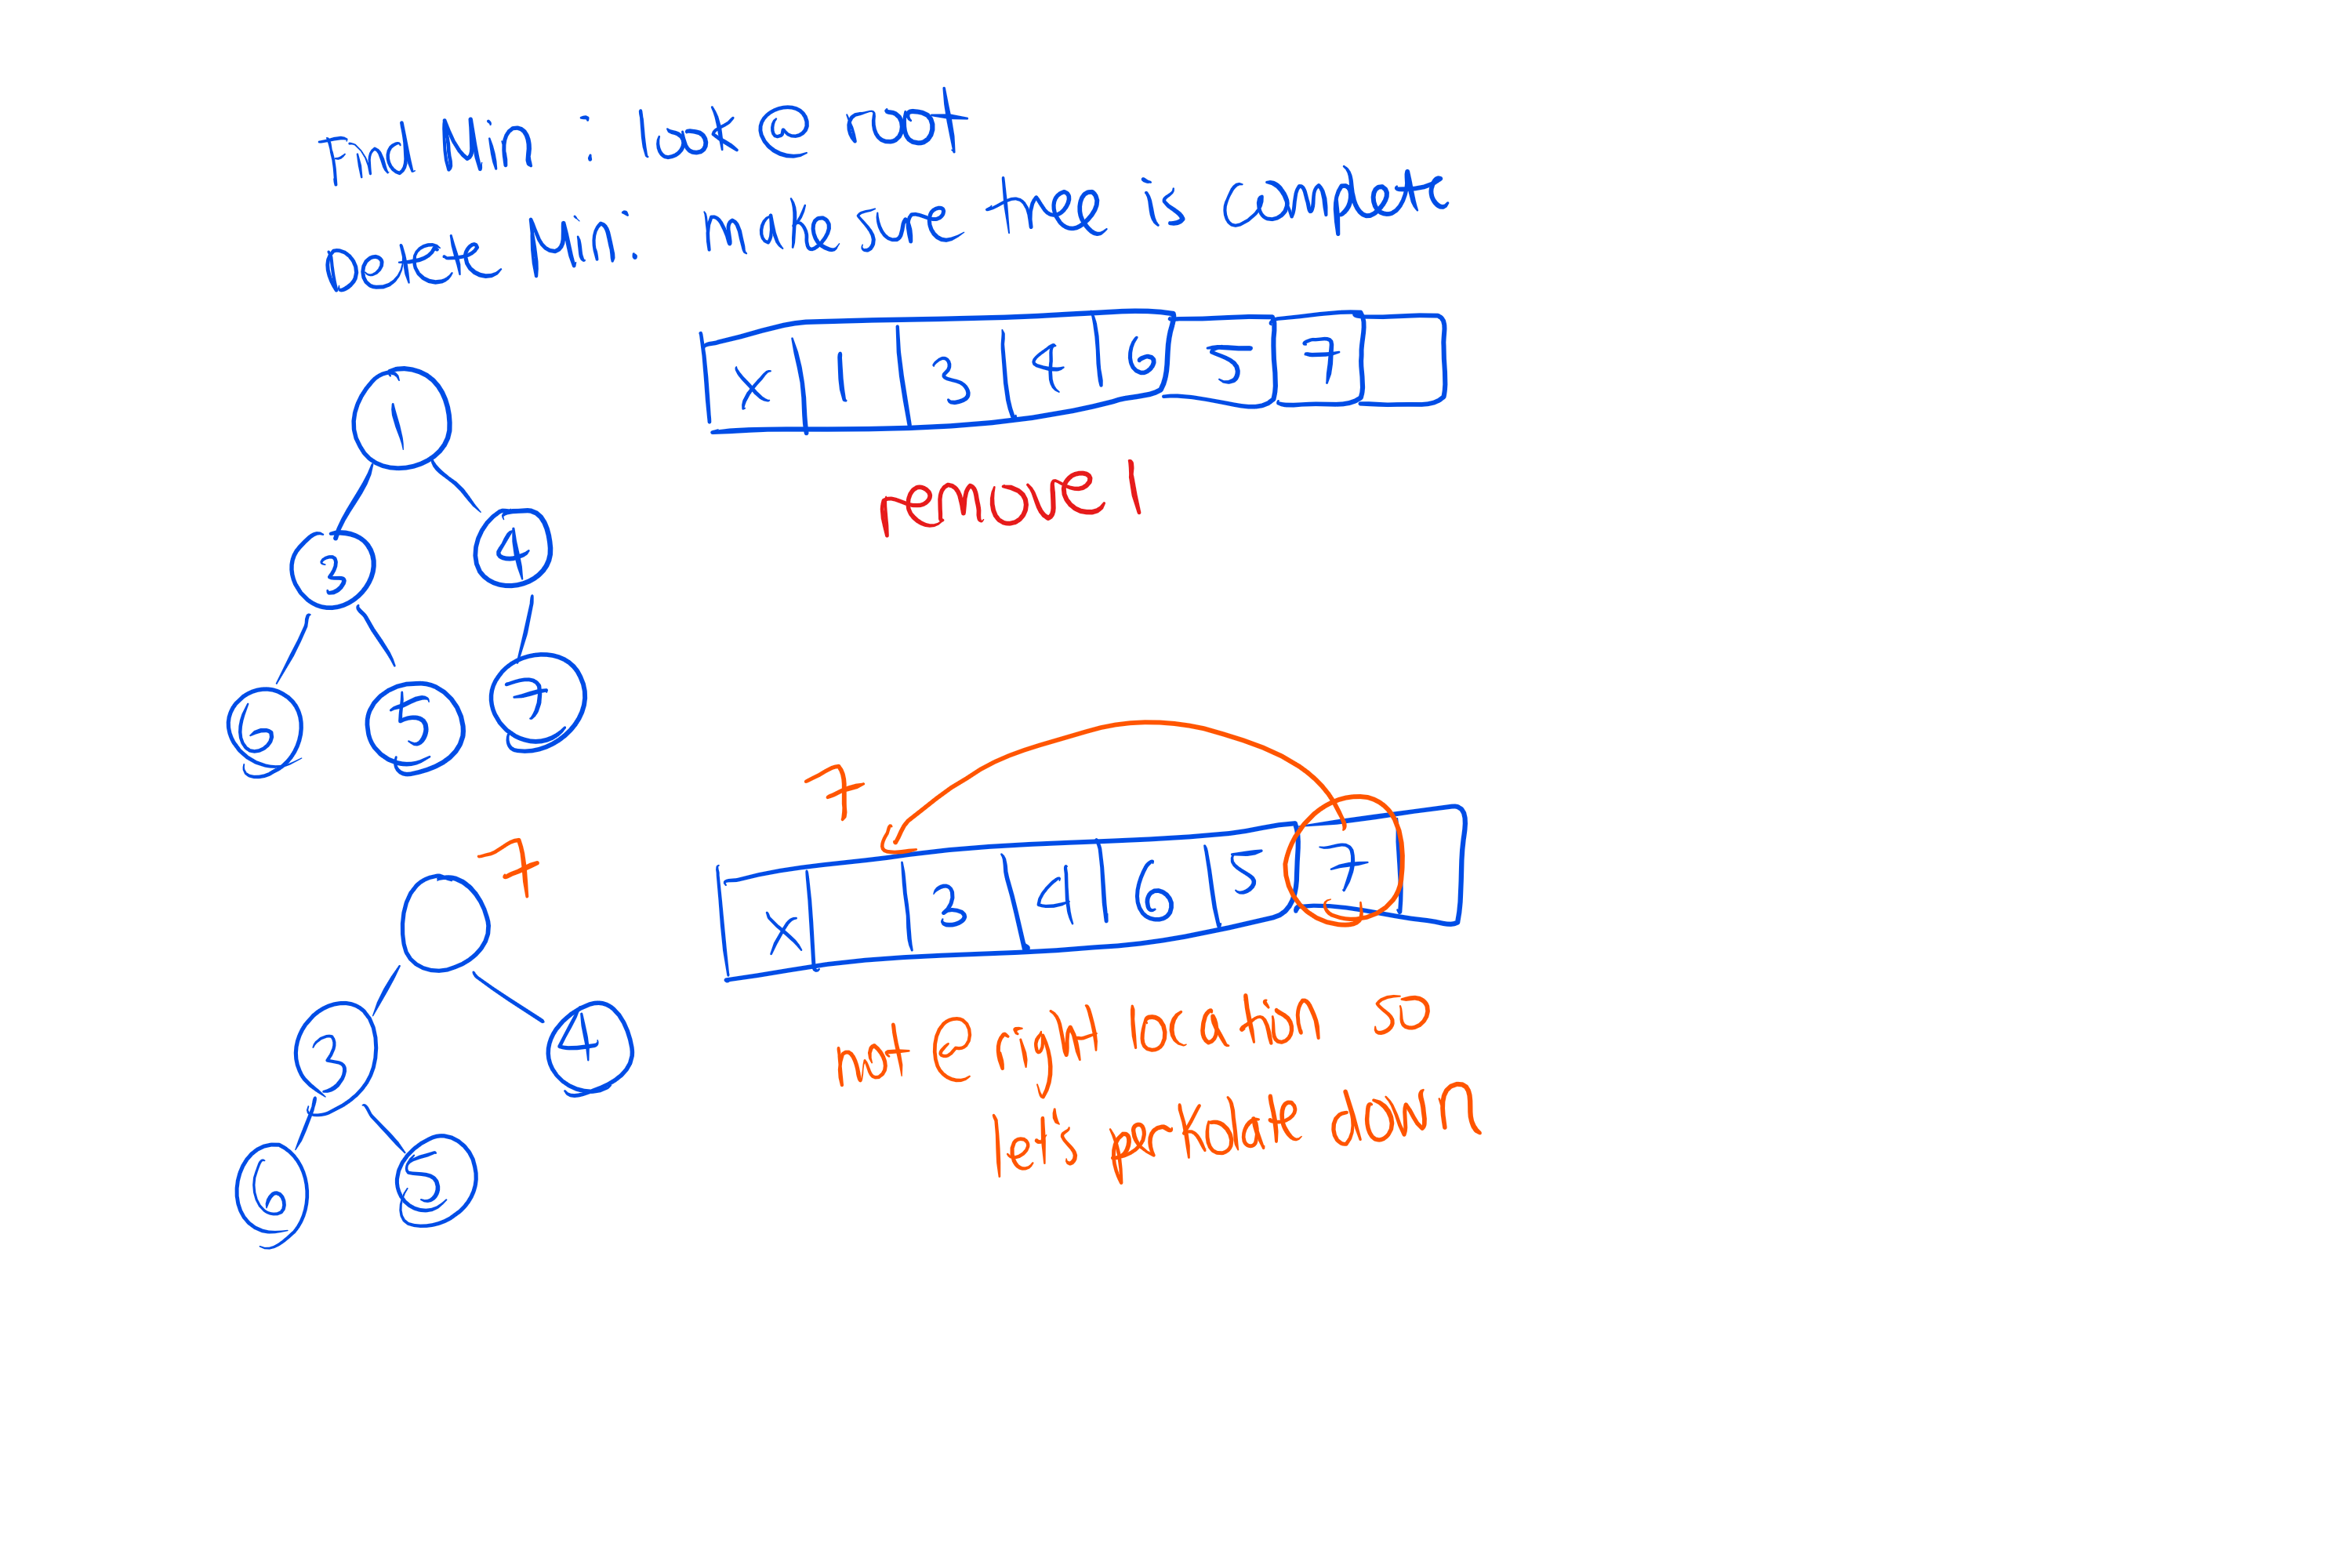 Find Min : look @ root
Delete Min: make sure tree is complete
X 1 3 4 6 5 7
remove 1
1
3 4
6 5 7
7
X 3 4 6 5 7
7
3 4
6 5
not @ right location so
let's perkolate down